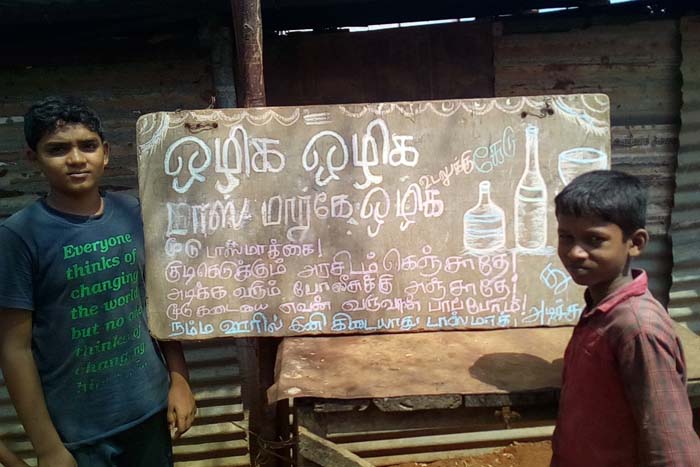 Everyone
thinks of
changing
the world
but no
thinks of
changing
ஒழிக ஒழிக
உடலுக்கு கேடு
டாஸ் மார்கே ஒழிக
மூடு டாஸ்மாக்கை!
குடிகெடுக்கும் அரசிடம் கெஞ்சாதே!
அடிக்க வரும் போலீசுக்கு அஞ்சாதே!
மூடு கடையை எவன் வருவான் பார்ப்போம்!
நம்ம ஊரில் இனி கிடையாது டாஸ்மாக்!